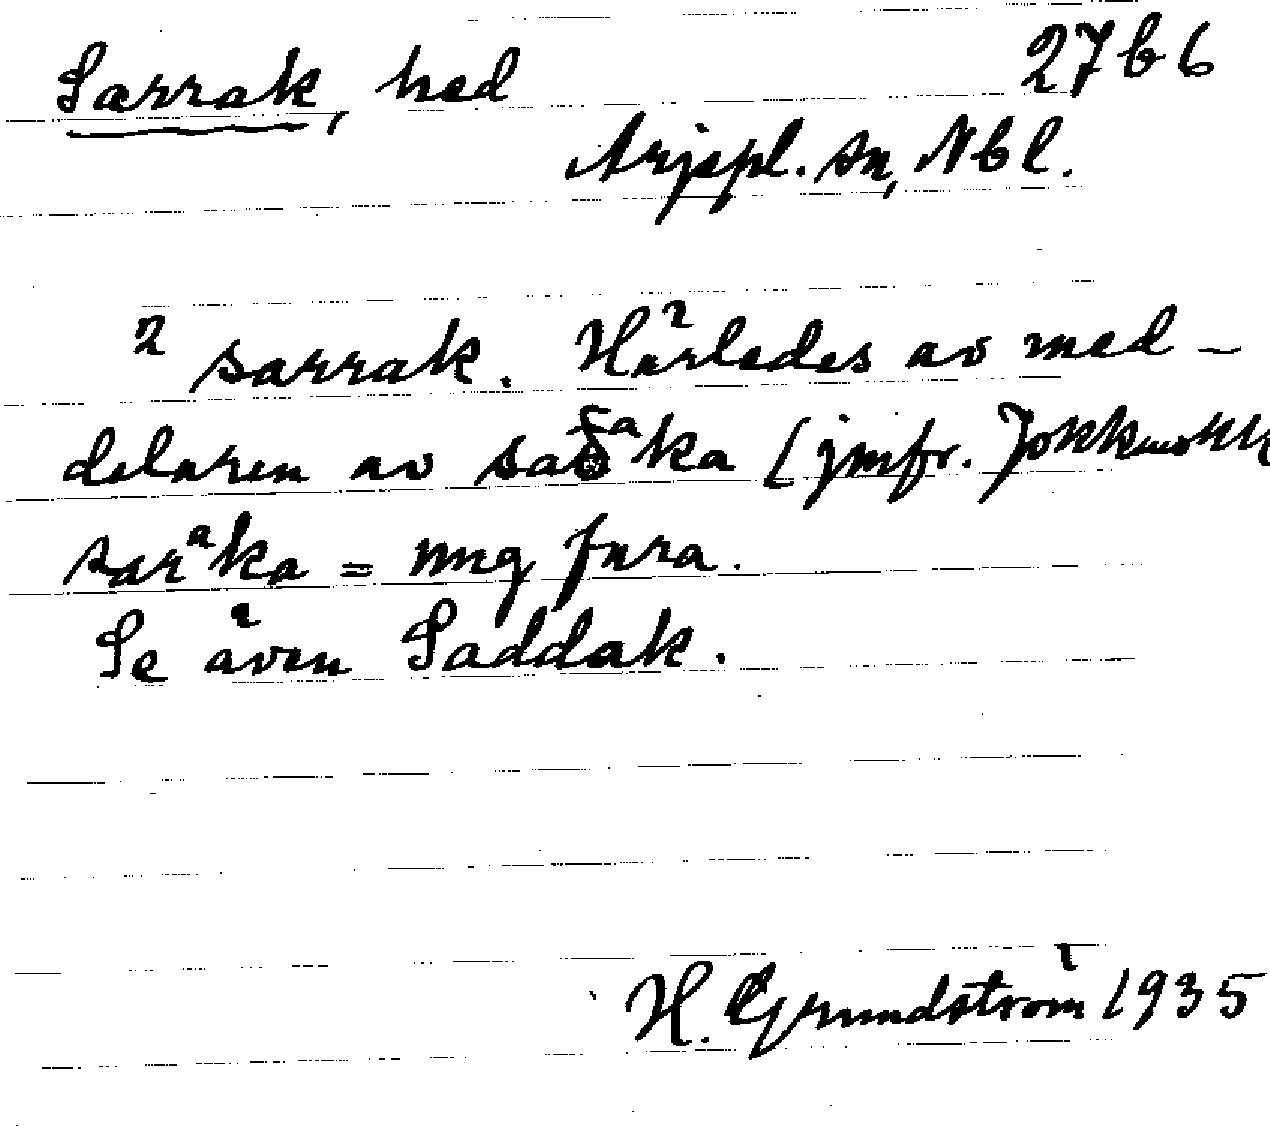 Sarrak, hed 27 b 6
Arjepl. sn, Nbl.
2 sarrak. Härledes av med-
delaren av saδᵃka (jmfr. Jokkmokk
sarᵃka = ung fura.
Se även Saddak.
H. Grundström 1935